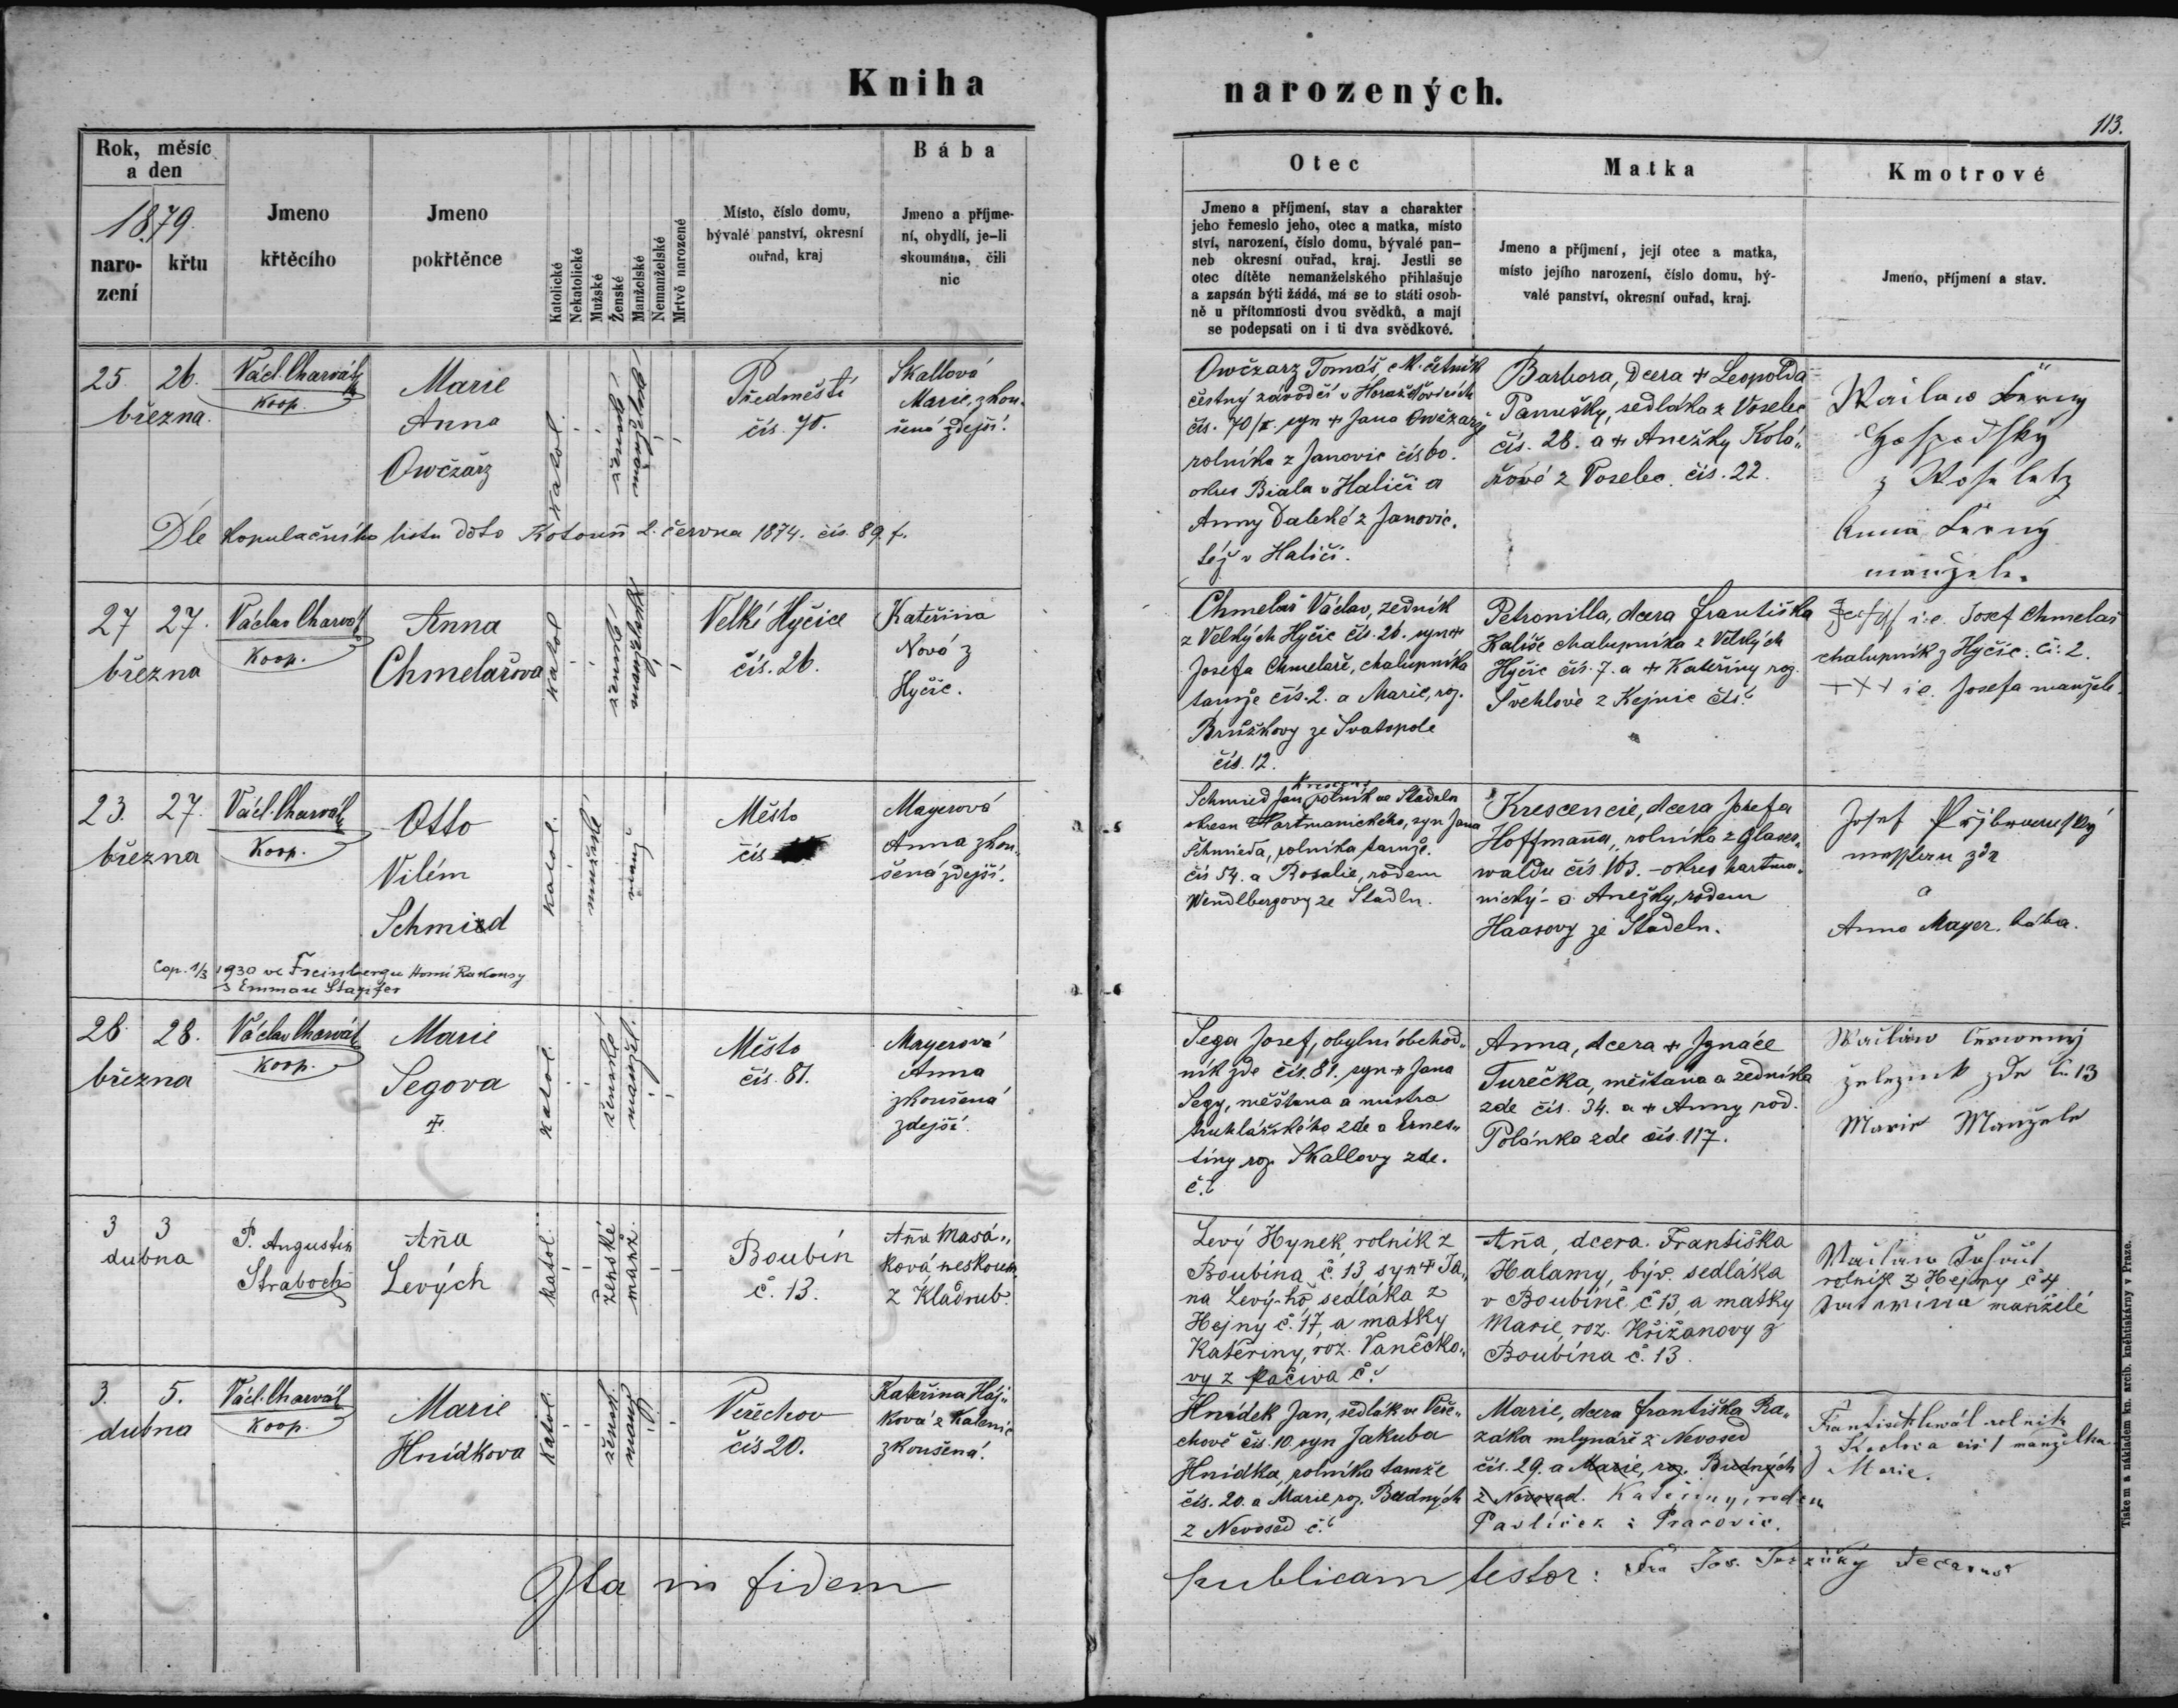 Kniha
narozených.
113.
Rok, měsíc
a den
1879.
naro-
zení
křtu
Jmeno
křtěcího
Jmeno
pokřtěnce
Katolické
Nekatolické
Mužské
Ženské
Manželské
Nemanželské
Mrtvě narozené
Místo, číslo domu,
bývalé panství, okresní
ouřad, kraj
Bába
Jmeno a příjme-
ní, obydlí, je-li
skoumána, čili
nic
Otec
Jmeno a příjmení, stav a charakter
jeho řemeslo jeho, otec a matka, místo
ství, narození, číslo domu, bývalé pan-
neb okresní ouřad, kraj. Jestli se
otec dítěte nemanželského přihlašuje
a zapsán býti žádá, má se to státi osob-
ně u přítomnosti dvou svědků, a mají
se podepsati on i ti dva svědkové.
Matka
Jmeno a příjmení, její otec a matka,
místo jejího narození, číslo domu, bý-
valé panství, okresní ouřad, kraj.
Kmotrové
Jmeno, příjmení a stav.
25. 26.
března
Václ. Charvát
Koop.
Marie
Anna
Owčžarz
Katol.
ženské
manželské
Předměstí
čís. 70.
Skallová
Marie, zkou-
šená zdejší.
Owčzarz Tomáš, četník
čestný závodčí v Horažďovicích
čís. 70/II. syn + Jana Owčzarze
rolníka z Janovic čís 60.
okres Biala v Haliči a
Anny Daleké z Janovic.
též v Haliči.
Barbora, dcera + Leopolda
Panušky, sedláka z Voselec
čís. 28. a + Anežky Kolá-
řové z Voselec čís. 22.
Anna
manžele.
Dle kopulačního listu ddto Kotouň 2. června 1874. čís. 89. f.
27 27.
března
Václav Charvát
Koop.
Anna
Chmelařova
Katol
ženské
manželské
Velké Hyčice
čís. 26.
Kateřina
Nová z
Hyčic.
Chmelař Václav, zedník
z Velkých Hyčic čís. 26. syn +
Josefa Chmelaře, chalupníka
tamže čís. 2. a Marie, roz.
Brůžkovy ze Svatopole
čís. 12.
Petronilla, dcera Františka
Kalíše chalupníka z Velkých
Hyčic čís. 7. a + Kateřiny roz.
Švehlové z Kejnic čís.
i.e. Josef Chmelař
chalupník z Hyčic. č. 2.
+++ i.e. Josefa manžele.
23. 27.
března
Václ. Charvát
Koop.
Otto
Vilém
Schmied
Katol.
mužské
manž
Město
čís
Mayerová
Anna zkou-
šená zdejší.
Schmied Jan, rolník ve Stadeln
okresu Hartmanického, syn Jana
Schmieda, rolníka tamže.
čís 54. a Rosalie, rodem
Wendlbergovy ze Stadln.
Krescencie, dcera Josefa
Hoffmanna, rolníka z Glaser-
waldu čís. 163. - okres hartma-
nický - a Anežky, rodem
Haasovy ze Stadeln.
Josef
a
Anna Mayer, bába.
Cop. 1/3 1930 ve Freinbergu Horní Rakousy
s Emmou
28 28.
března
Václav Charvát
Koop.
Marie
Segova
+
Katol.
ženské
manžel.
Město
čís. 81.
Mayerová
Anna
zkoušená
zdejší.
Sega Josef, obylní obchod-
ník zde čís. 81. syn + Jana
Segy, měšťana a mistra
truhlářského zde a Ernes-
tiny roz. Skallovy zde.
č.
Anna, dcera + Ignáce
Turečka, měšťana a zedníka
zde čís. 34. a + Anny rod.
Polánka zde čís. 117.
zde č. 13
Marie Manžele
3 3
dubna
P. Augustin
Straboch
Aňa
Levých
Katol.
ženské
manž.
Boubín
č. 13.
Aňa Masá-
ková neskouš.
z Kladrub.
Levý Hynek, rolník z
Boubína č. 13 syn + Ja-
na Levý-ho sedláka z
Hejny č. 17, a matky
Kateřiny, roz. Vanečko-
vy z Pačiva č.
Aňa, dcera Františka
Halamy, býv. sedláka
v Boubíně č 13, a matky
Marie, roz. Křižanovy z
Boubína č. 13.
rolník z Hejny č 4
manželé
3. 5.
dubna
Václ. Charvát
Koop.
Marie
Hnidkova
Katol.
žensk.
manž.
Veřechov
čís 20.
Kateřina Háj-
ková z Kalenic
zkoušená.
Hnidek Jan, sedlák ve Veře-
chově čís. 10. syn Jakuba
Hnidka, rolníka tamže
čís. 20. a Marie roz. Budných
z Nevosed č.
Marie, dcera Františka Ra-
záka mlynáře z Nevosed
čís. 29. a Marie, roz. Budných
z Nevosed. Kateřiny, rodem
Pavlíček z Pracovic.
rolník
čís 1 manželka
Marie.
Ita in fidem
publicam testor:
Tiskem a nákladem kn. arcib. kněhtiskárny v Praze.